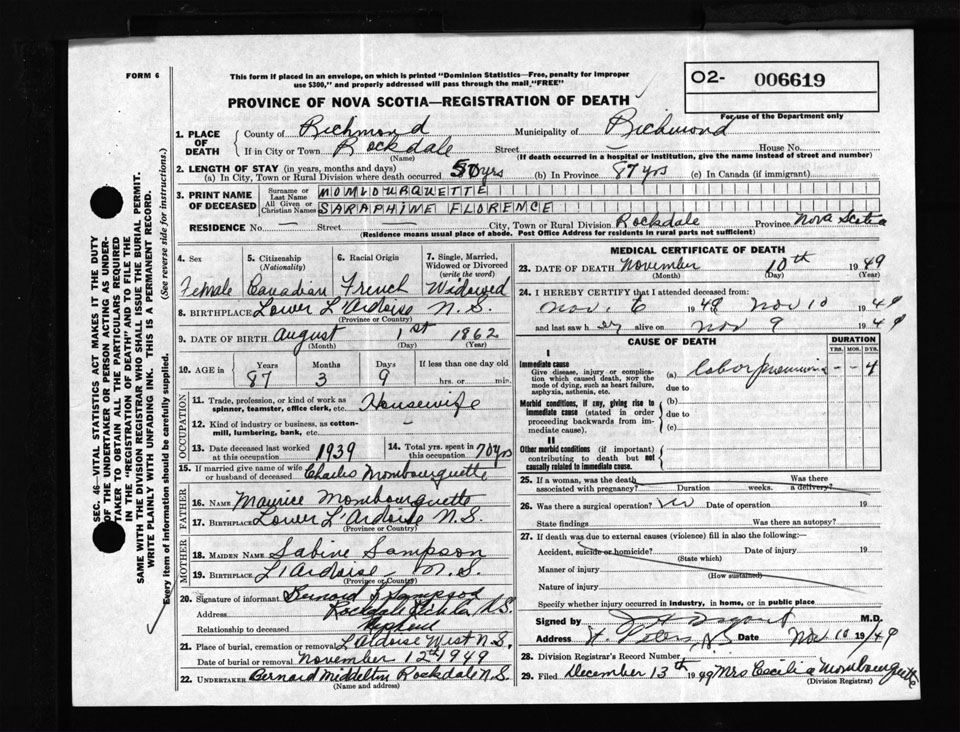 FORM 6
This form if placed in an envelope, on which is printed "Dominion Statistics—Free, penalty for improper
use $300," and properly addressed will pass through the mail "FREE"
O2- 006619
For use of the Department only
PROVINCE OF NOVA SCOTIA—REGISTRATION OF DEATH
1. PLACE OF DEATH County of Richmond Municipality of Richmond
If in City or Town Rockdale (Name) Street — House No.
(If death occurred in a hospital or institution, give the name instead of street and number)
2. LENGTH OF STAY (in years, months and days)
(a) In City, Town or Rural Division where death occurred 50 yrs (b) In Province 87 yrs (c) In Canada (if immigrant)
3. PRINT NAME OF DECEASED Surname or Last Name MOMBOURQUETTE
All Given or Christian Names SARAPHINE FLORENCE
RESIDENCE No. — Street City, Town or Rural Division Rockdale Province Nova Scotia
(Residence means usual place of abode. Post Office Address for residents in rural parts not sufficient)
4. Sex 5. Citizenship (Nationality) 6. Racial Origin 7. Single, Married, Widowed or Divorced (write the word)
Female Canadian French Widowed
8. BIRTHPLACE Lower L'Ardoise N.S.
(Province or Country)
9. DATE OF BIRTH August 1st 1862
(Month) (Day) (Year)
10. AGE in Years Months Days If less than one day old
87 3 9 hrs. or min.
OCCUPATION
11. Trade, profession, or kind of work as spinner, teamster, office clerk, etc. Housewife
12. Kind of industry or business, as cotton-mill, lumbering, bank, etc. -
13. Date deceased last worked at this occupation 1939 14. Total yrs. spent in this occupation 70 yrs
15. If married give name of wife or husband of deceased Charles Mombourquette
FATHER
16. NAME Maurice Mombourquette
17. BIRTHPLACE Lower L'Ardoise N.S.
(Province or Country)
MOTHER
18. MAIDEN NAME Sabine Sampson
19. BIRTHPLACE L'Ardoise N.S.
(Province or Country)
20. Signature of informant Bernard Sampson
Address Rockdale N.S.
Relationship to deceased Nephew
21. Place of burial, cremation or removal L'Ardoise West N.S.
Date of burial or removal November 12th 1949
22. UNDERTAKER Bernard Middeltin Rockdale N.S.
(Name and address)
MEDICAL CERTIFICATE OF DEATH
23. DATE OF DEATH November 10th 1949
(Month) (Day) (Year)
24. I HEREBY CERTIFY that I attended deceased from:
Nov. 6 1949 Nov 10 1949
and last saw h er alive on Nov 9 1949
CAUSE OF DEATH DURATION
YRS. MOS. DYS.
I
Immediate cause
Give disease, injury or complication which caused death, NOT the mode of dying, such as heart failure, asphyxia, asthenia, etc.
(a) Lobar pneumonia - - 4
due to
Morbid conditions, if any, giving rise to immediate cause (stated in order proceeding backwards from immediate cause).
(b)
due to
(c)
II
Other morbid conditions (if important) contributing to death but not causally related to immediate cause.
25. If a woman, was the death associated with pregnancy? Duration weeks. Was there a delivery?
26. Was there a surgical operation? no Date of operation 19
State findings Was there an autopsy?
27. If death was due to external causes (violence) fill in also the following:—
Accident, suicide or homicide? (State which) Date of injury 19
Manner of injury (How sustained)
Nature of injury
Specify whether injury occurred in industry, in home, or in public place
Signed by M.D.
Address Date Nov 10 19/49
28. Division Registrar's Record Number
29. Filed December 13th 1949 Mrs Cecilia Mombourquette
(Division Registrar)
SEC. 46—VITAL STATISTICS ACT MAKES IT THE DUTY
OF THE UNDERTAKER OR PERSON ACTING AS UNDER-
TAKER TO OBTAIN ALL THE PARTICULARS REQUIRED
IN THE "REGISTRATION OF DEATH" AND TO FILE THE
SAME WITH THE DIVISION REGISTRAR WHO SHALL ISSUE THE BURIAL PERMIT.
WRITE PLAINLY WITH UNFADING INK. THIS IS A PERMANENT RECORD.
Every item of information should be carefully supplied. (See reverse side for instructions.)